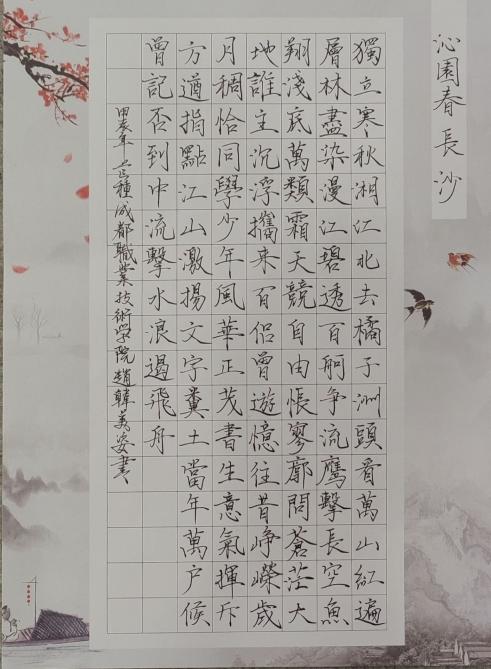 沁園春 長沙
獨立寒秋湘江北去橘子洲頭看萬山紅遍
層林盡染漫江碧透百舸争流鷹擊長空魚
翔淺底萬類霜天競自由悵寥廓問蒼茫大
地誰主沉浮攜来百侣曾遊憶往昔崢嶸歲
月稠恰同學少年風華正茂書生意氣揮斥
方遒指點江山激揚文字糞土當年萬户侯
曾記否到中流擊水浪遏飛舟
甲辰年芒種成都職業技術學院趙韓美姿書